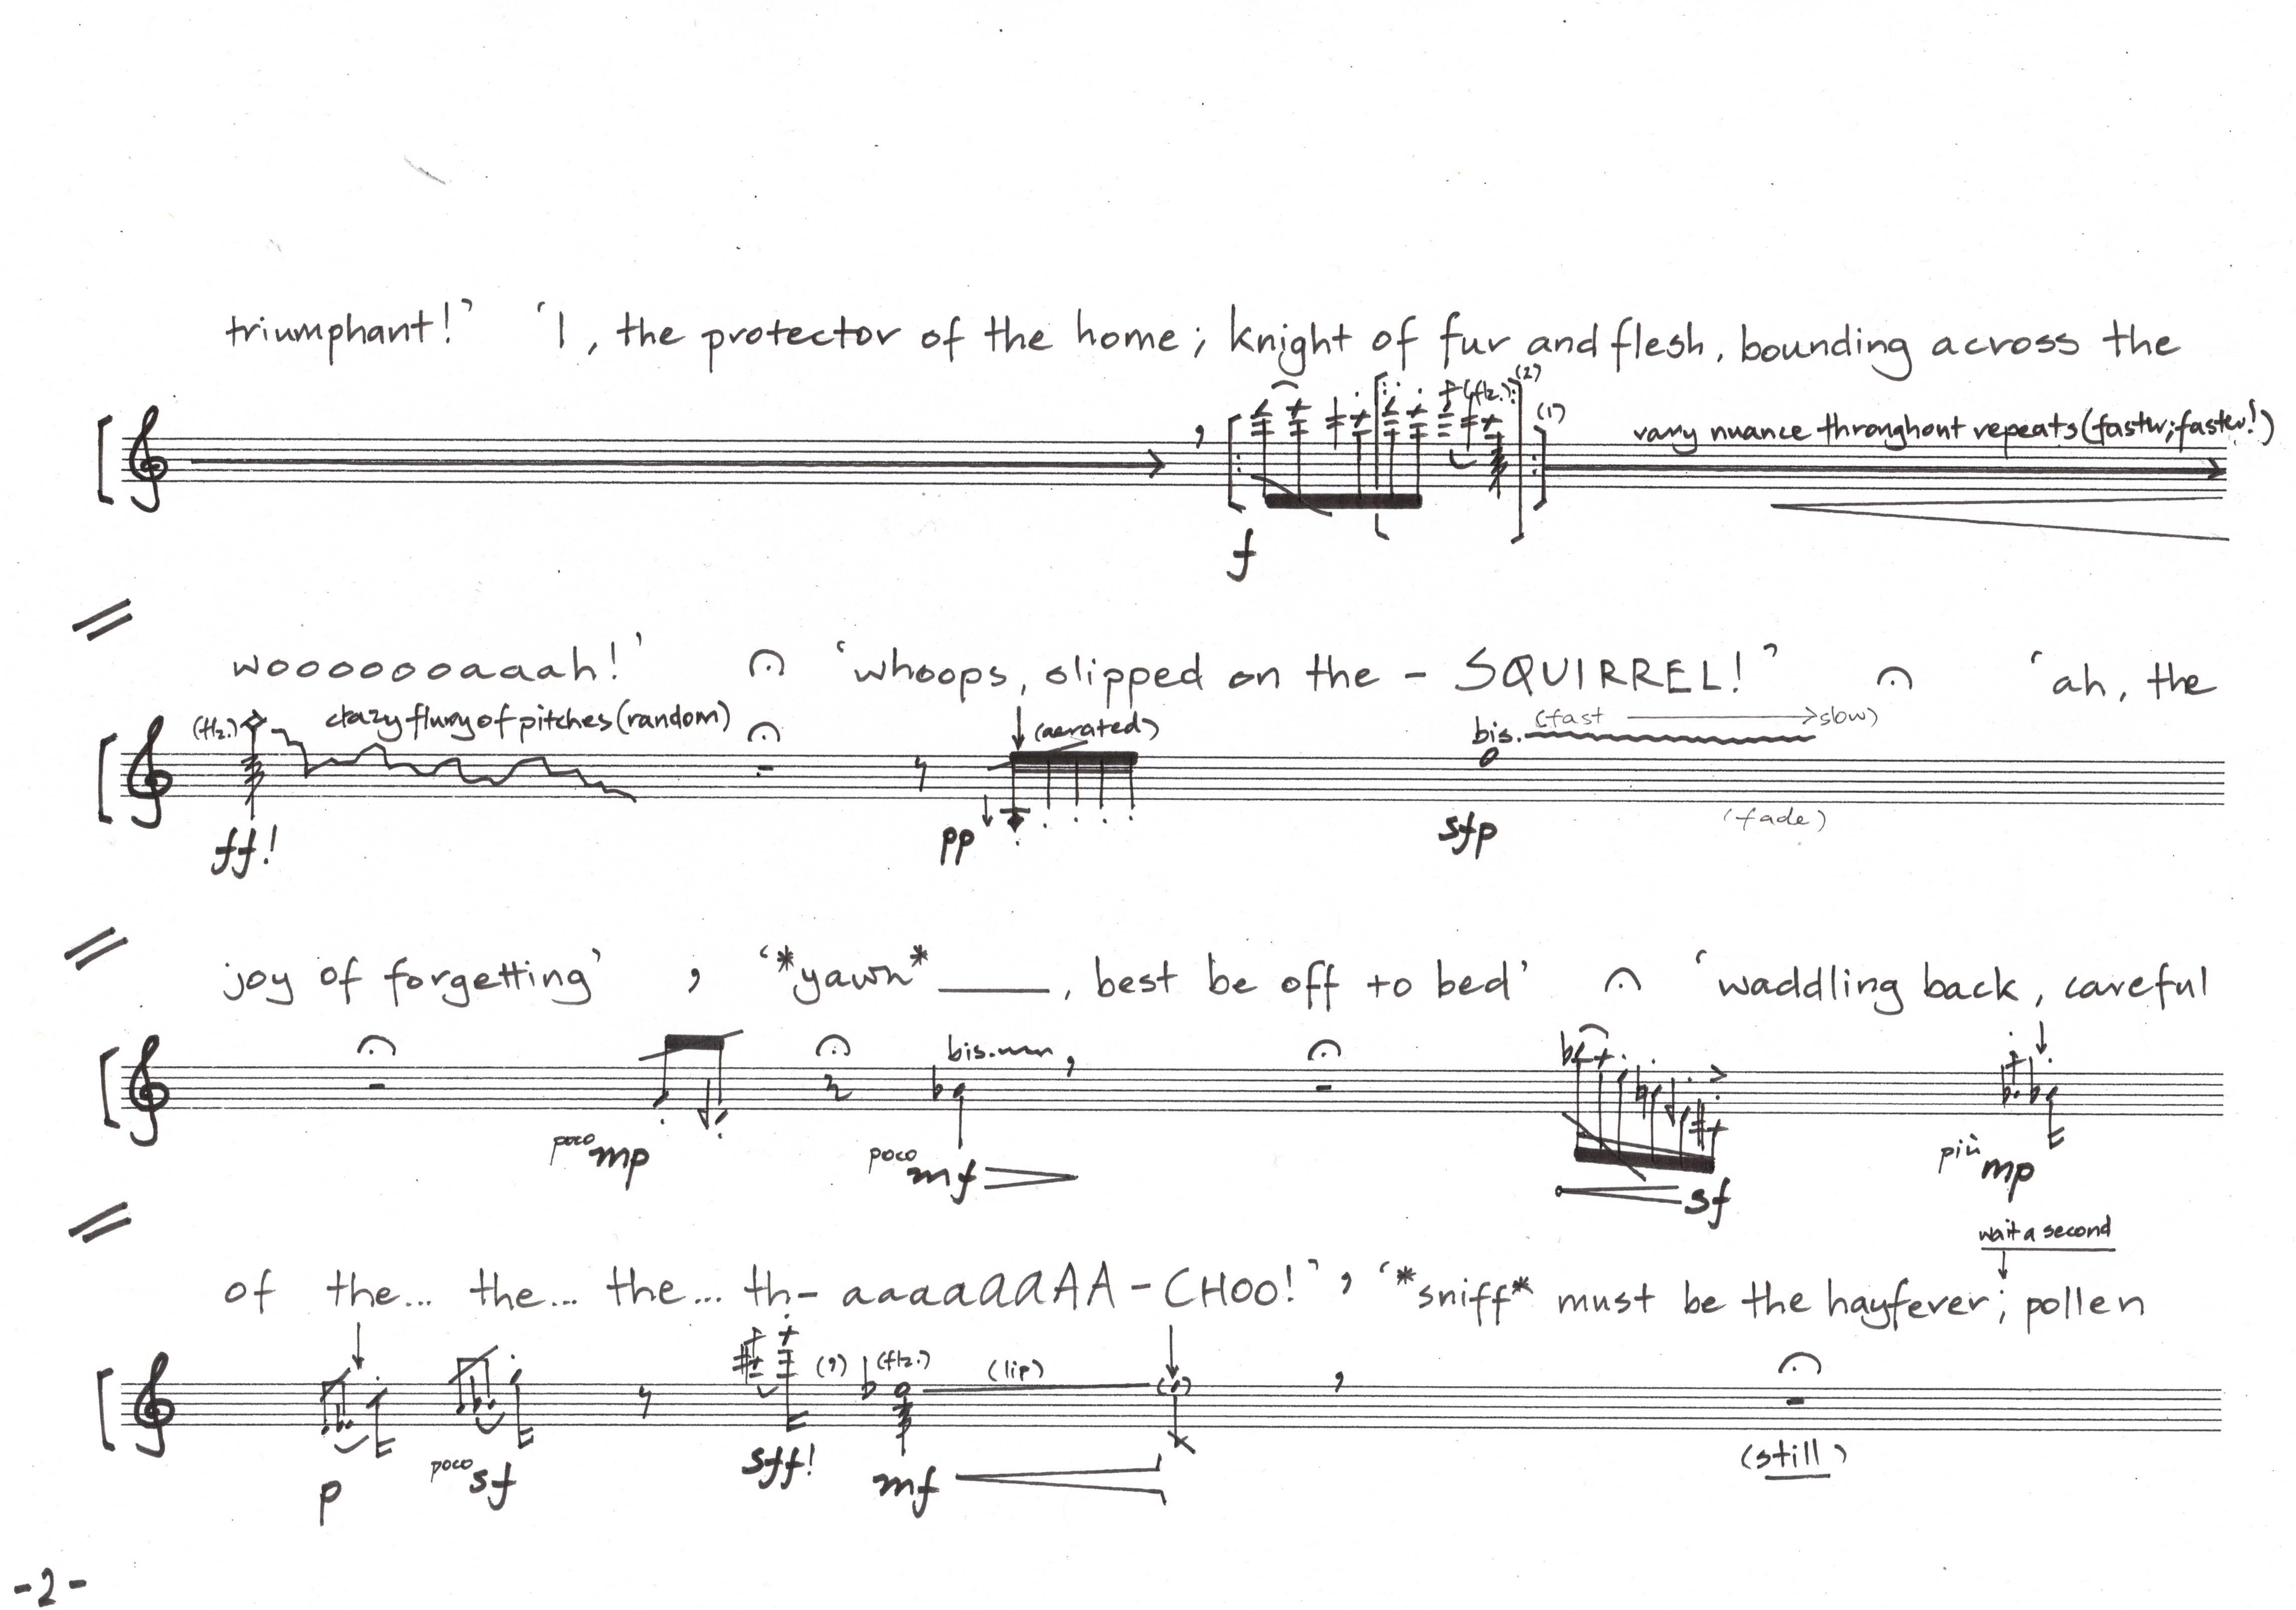 triumphant!' 'I, the protector of the home; knight of fur and flesh, bounding across the
(flz.) (2)
(1)
vary nuance throughout repeats (faster; faster!)
f
woooooooaaah!' 'whoops, slipped on the - SQUIRREL!' 'ah, the
(flz.) crazy flurry of pitches (random) (aerated) bis. (fast slow)
ff! pp sfp (fade)
joy of forgetting' , '*yawn* ____, best be off to bed' 'waddling back, careful
bis. ,
poco mp poco mf sf più mp
wait a second
of the... the... the... th- aaaaaaaAA - CHOO!' , '*sniff* must be the hayfever; pollen
(,) (flz.) (lip) ,
p poco sf sff! mf (still)
-2-